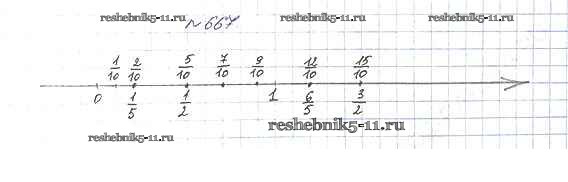 reshebnik5-11.ru reshebnik5-11.ru reshebnik5-11.ru
№ 667
1/10 2/10 5/10 7/10 9/10 12/10 15/10
0 1/5 1/2 1 6/5 3/2
reshebnik5-11.ru
reshebnik5-11.ru